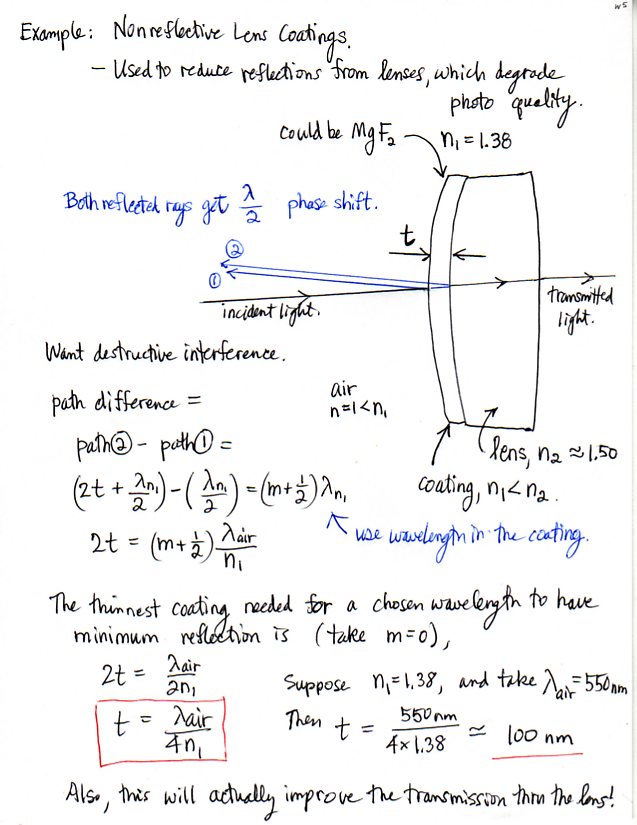 W5
Example: Nonreflective Lens Coatings.
– Used to reduce reflections from lenses, which degrade
photo quality.
could be MgF₂
n₁ = 1.38
Both reflected rays get λ/2 phase shift.
t
②
①
incident light.
transmitted
light.
Want destructive interference.
air
n=1<n₁
path difference =
path② – path① =
lens, n₂ ≈ 1.50
(2t + λn₁/2) – (λn₁/2) = (m+½) λn₁
coating, n₁<n₂.
use wavelength in the coating.
2t = (m+½) λair/n₁
The thinnest coating needed for a chosen wavelength to have
minimum reflection is (take m=0),
2t = λair/2n₁
Suppose n₁=1.38, and take λair=550nm
t = λair/4n₁
Then t = 550nm/4×1.38 ≃ 100 nm
Also, this will actually improve the transmission thru the lens!